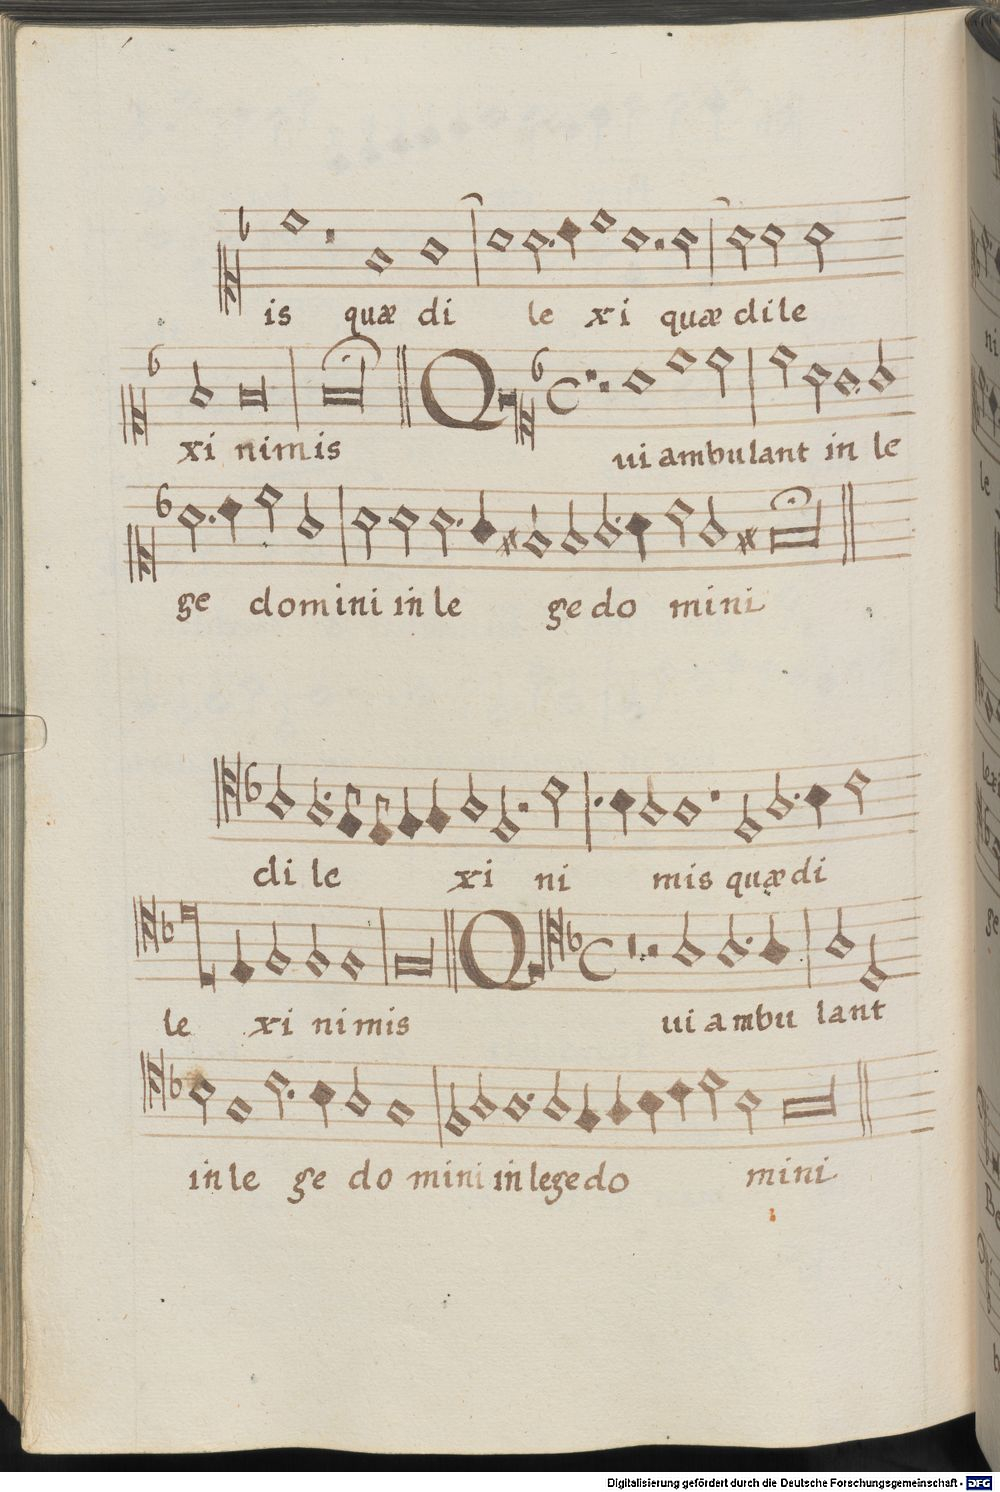 is quæ di le xi quæ dile
xi nimis Qui ambulant in le
ge domini in le ge do mini
di le xi ni mis quæ di
le xi nimis Qui ambu lant
in le ge do mini in lege do mini
Digitalisierung gefördert durch die Deutsche Forschungsgemeinschaft - DFG